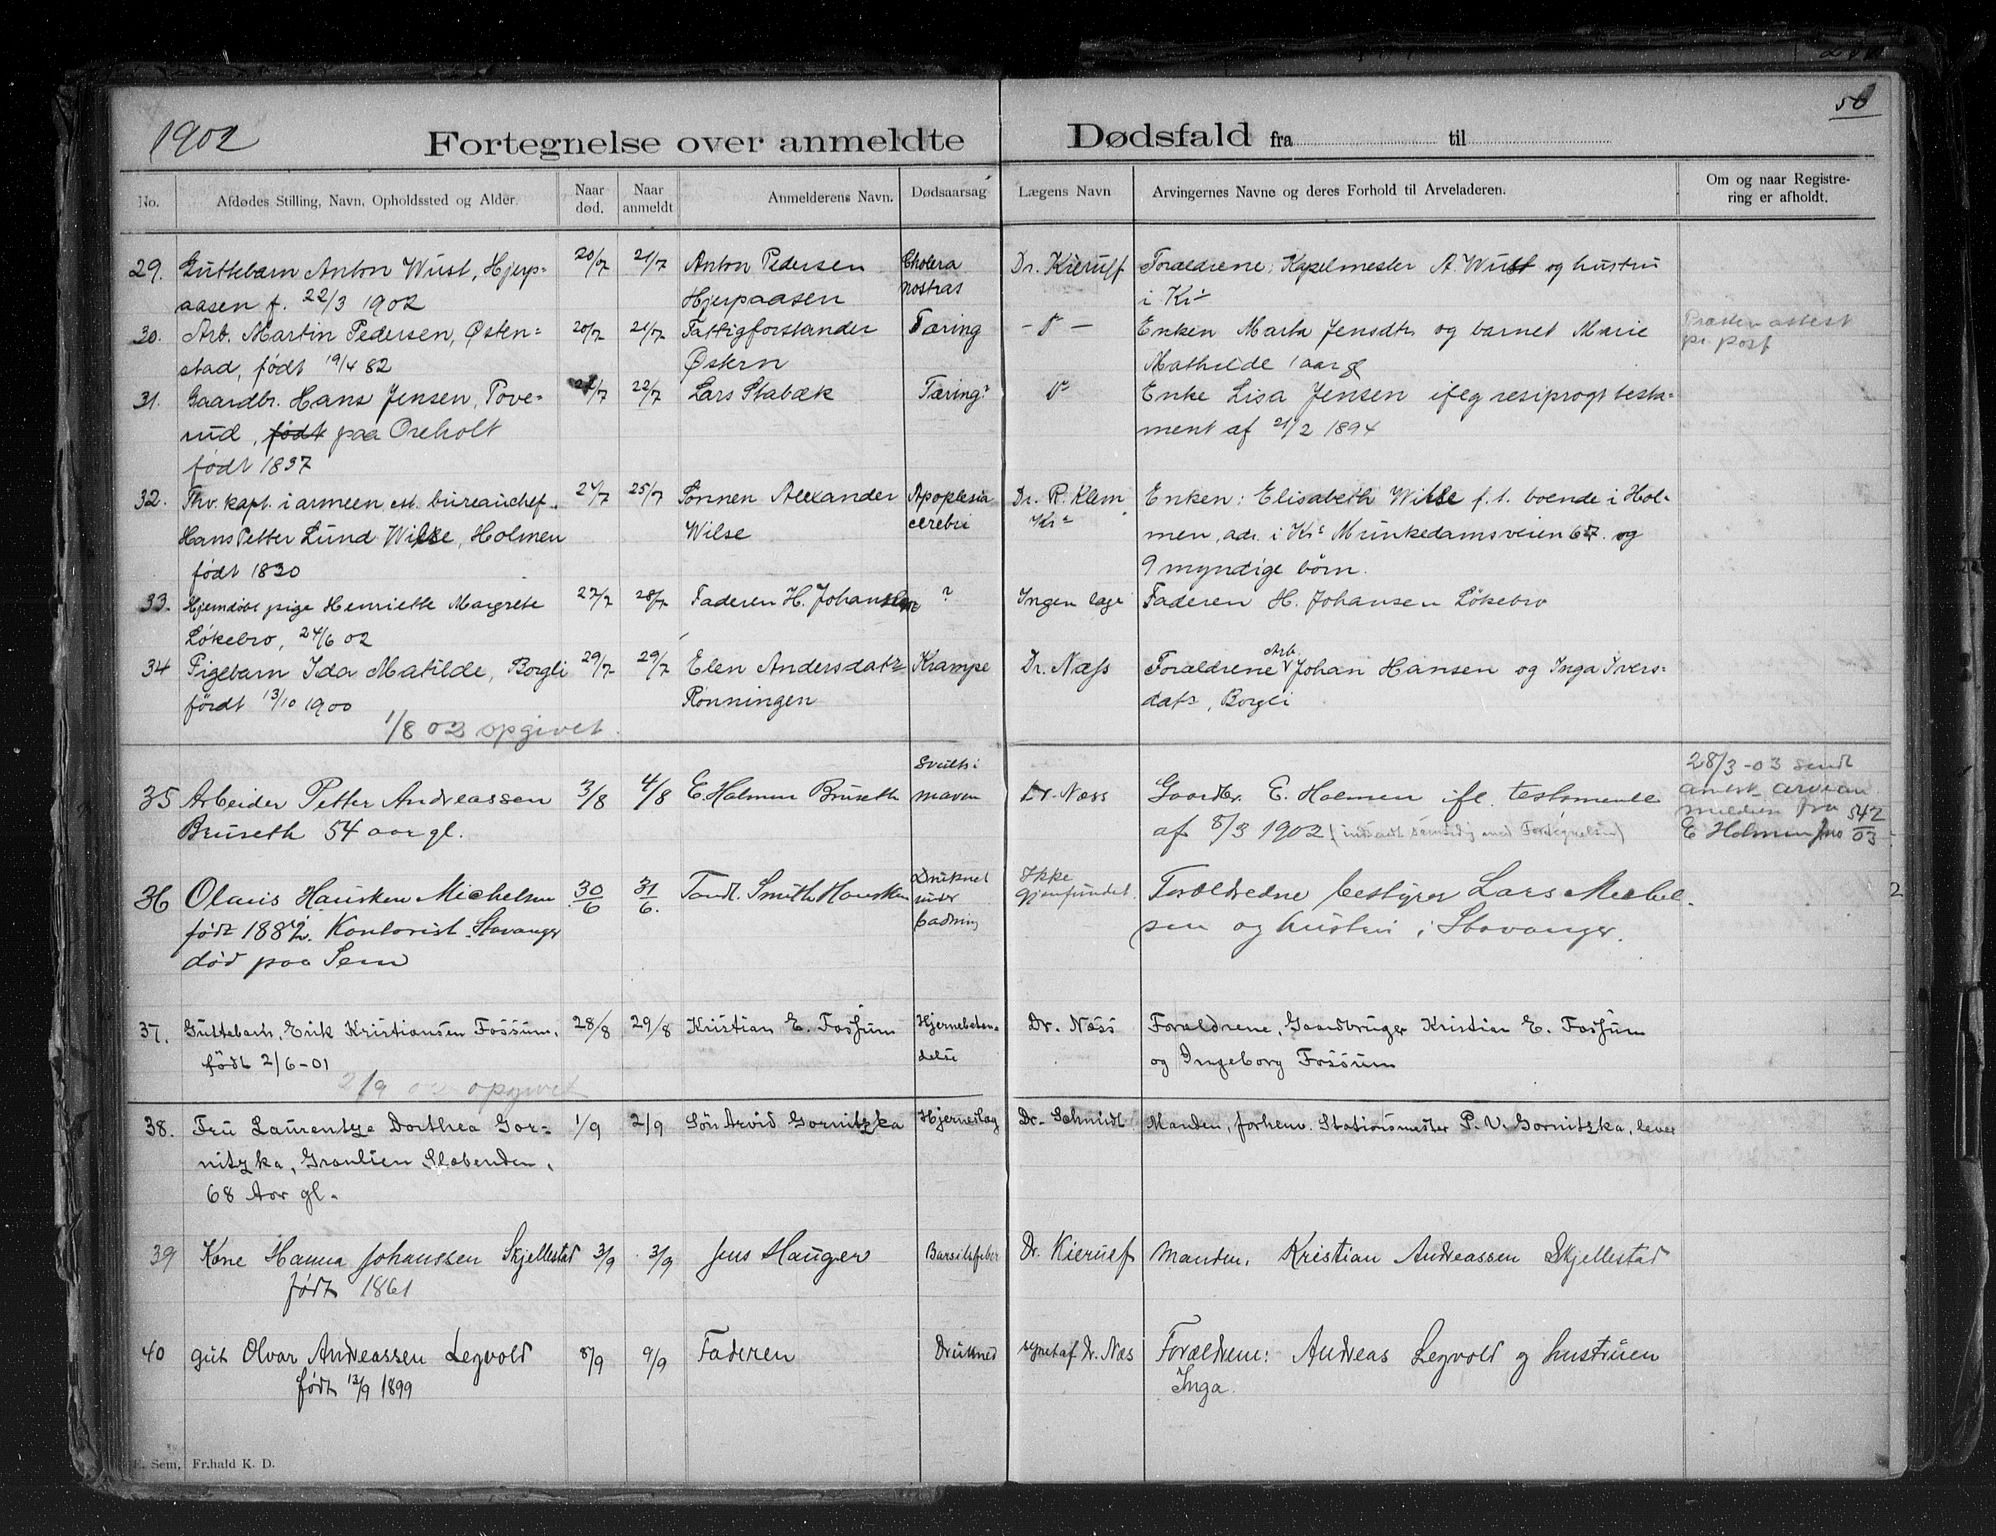 50
1902
Fortegnelse over anmeldte Dødsfald fra til
No.
Afdødes Stilling, Navn, Opholdssted og Alder.
Naar død.
Naar anmeldt
Anmelderens Navn.
Dødsaarsag
Lægens Navn
Arvingernes Navne og deres Forhold til Arveladeren.
Om og naar Registre-
ring er afholdt.
29. Guttebarn Anton Wust, Hjerp- 20/7 21/7 Anton Pedersen Cholera Dr. Kierulf Forældrene: Kapelmester A. Wust og hustru
aasen f. 22/3 1902 Hjerpaasen nostras i Kr
30. Arb. Martin Pedersen, Østen- 20/7 21/7 Fattigforstander Tæring Enken Marta Jensdtr og barnet Marie
stad, født 19/4 82 Østern Mathilde 1 aar gl pr. post
31. Gaardbr. Hans Jensen, Tove- 21/7 22/7 Lars Stabæk Tæring? Do Enke Lisa Jensen iføg resiprogt testa-
rud, født paa Oreholt ment af 21/2 1894
født 1837
32. Thv. kapt. i armeen, est. bureauchef 24/7 25/7 Sønnen Alexander Apoplesia Dr. R. Klem Enken: Elisabeth Wilse f. t. boende i Hol-
Hans Petter Lund Wilse, Holmen Wilse cerebri Kra men, adr. i Kr Munkedamsveien 67. og
født 1830 9 myndige børn.
33. Hjemdøbt pige Henriette Margrete 27/7 28/7 Faderen H. Johansen ? Ingen læge Faderen H. Johansen Løkebro
Løkebro, 24/6 02
34 Pigebarn Ida Matilde, Borgli 29/7 29/7 Elen Andersdatr Krampe Dr. Næss Forældrene Arb. Johan Hansen og Inga Ivers-
født 13/10 1900 Rønningen datr, Borgli
1/8 02 opgivet.
35 Arbeider Petter Andreassen 3/8 4/8 E. Holmen Bruseth Svulst i maven Dr. Næss Gaardbr. E. Holmen ifl. testamente 28/3-03 sendt
Bruseth 54 aar gl. af 8/3 1902 (indsendt samtidig med Fortegnelsen) fra
E Holmen jno 542/03
36 Olaus Hausken Michelsen 30/6 31/6. Tandl. Smith Housken Druknet Ikke Forældrene bestyrer Lars Michel-
født 1882. Kontorist Stavanger under gjenfundet sen og hustru i Stavanger.
død paa Sem badning
37. Guttebarn, Erik Kristiansen Fossum, 28/8 29/8 Kristian E. Fossum Hjernebeten- Dr. Næss Forældrene, Gaardbruger Kristian E. Fossum
født 2/6-01 delse og Ingeborg Fossum
2/9 02 opgivet
38. Fru Laurentze Dorthea Gor- 1/9 2/9 Søn Arvid Gornitzka Hjerneslag Dr. Schmidt Manden, forhenv. Stationsmester P. V. Gornitzka, lever
nitzka, Granlien Slæbenden,
68 Aar gl.
39 Kone Hanna Johanssen Skjellestad 3/9 3/9 Jens Hauger Barsilsfeber Dr. Kierulf Manden, Kristian Andreassen Skjellestad
født 1861
40 gut Olvar Andreassen Legvold 8/9 9/9 Faderen Druknet synet af Dr. Næs Forældrene: Andreas Legvold og hustruen
født 12/9 1899 Inga.
E. Sem, Fr.hald K. D.